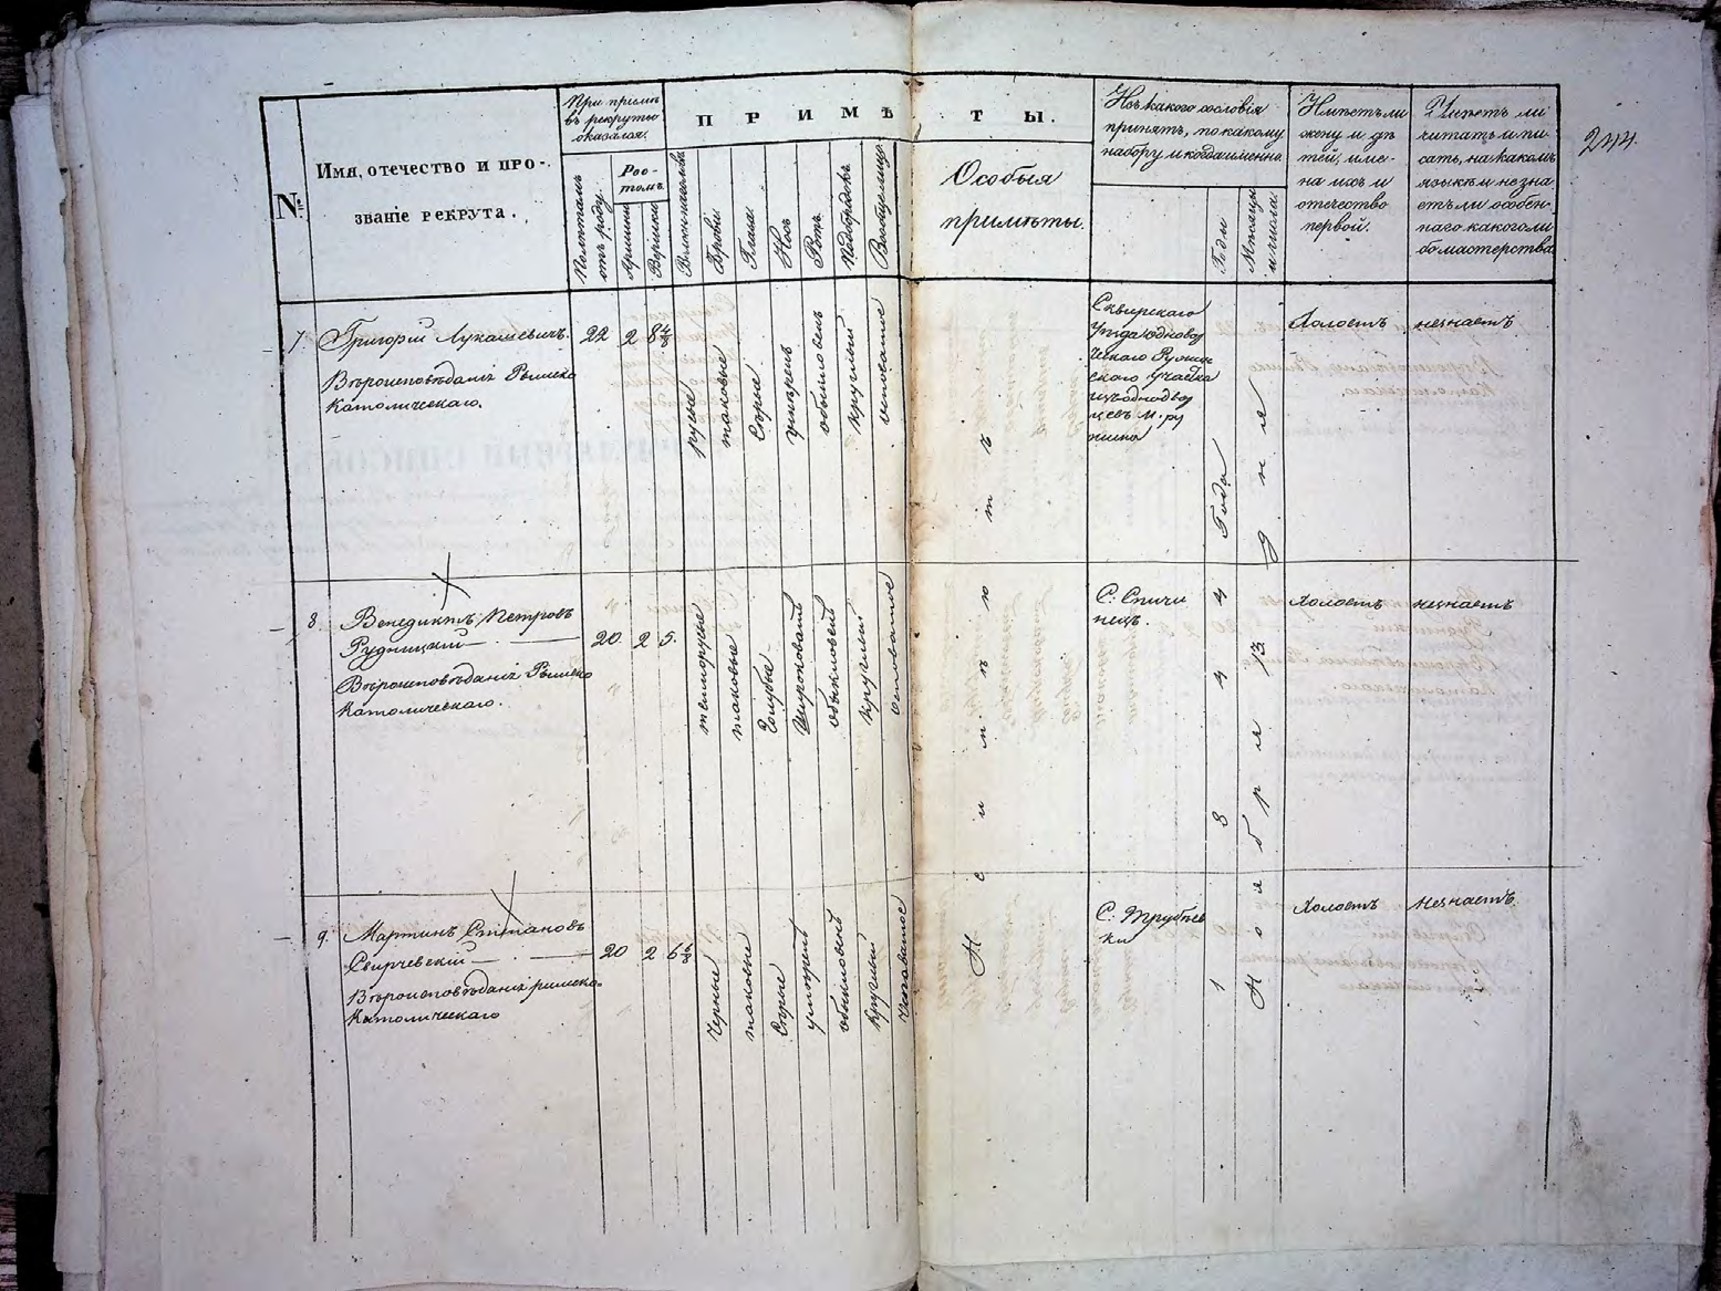 №
Имя, отечество и про-
званіе рекрута.
При приемѣ
въ рекруты
оказался.
Полѣтамъ
отъ роду.
Рос-
томъ
Аршины
Вершки
ПРИМѢТЫ.
Брови
Глаза
Носъ
Ротъ
Подбородокъ
Особыя
примѣты.
Изъ какого сословія
принятъ, по какому
набору и когда именно
Годы
Мѣсяцы
и числа.
Имѣетъ ли
жену и дѣ
тей, име-
на ихъ и
отечество
первой.
Умѣетъ ли
читать и пи
сать, на какомъ
языкѣ и не зна
етъ ли особен
наго какого ли
бо мастерства
244.
7. Григорій Лукашевичъ. 22 2 8 4/8
Вѣроисповѣданія Римско
Католическаго.
русые
таковые
Сѣрые
умѣренъ
обыкновенъ
круглый
Сквирскаго
Уѣзда однодвор
ческаго Ружин
скаго Участка
изъ однодвор
цевъ М. Ру
жина
Холостъ
незнаетъ
8. Венедиктъ Петровъ
Рудницкій 20. 2 5.
Вѣроисповѣданія Римско
Католическаго.
темнорусые
таковые
Голубые
Широковатъ
обыкновенъ
круглый
С. Спичи
нецъ.
Холостъ
незнаетъ
9. Мартинъ Степановъ
Свирчевскій 20 2 6
Вѣроисповѣданія римско
Католическаго
Черные
таковые
Сѣрые
умѣренъ
обыкновенъ
Круглый
С. Трубѣев
ки
Неимѣютъ
1844 Года
Ноября 13 дня
Холостъ
Незнаетъ